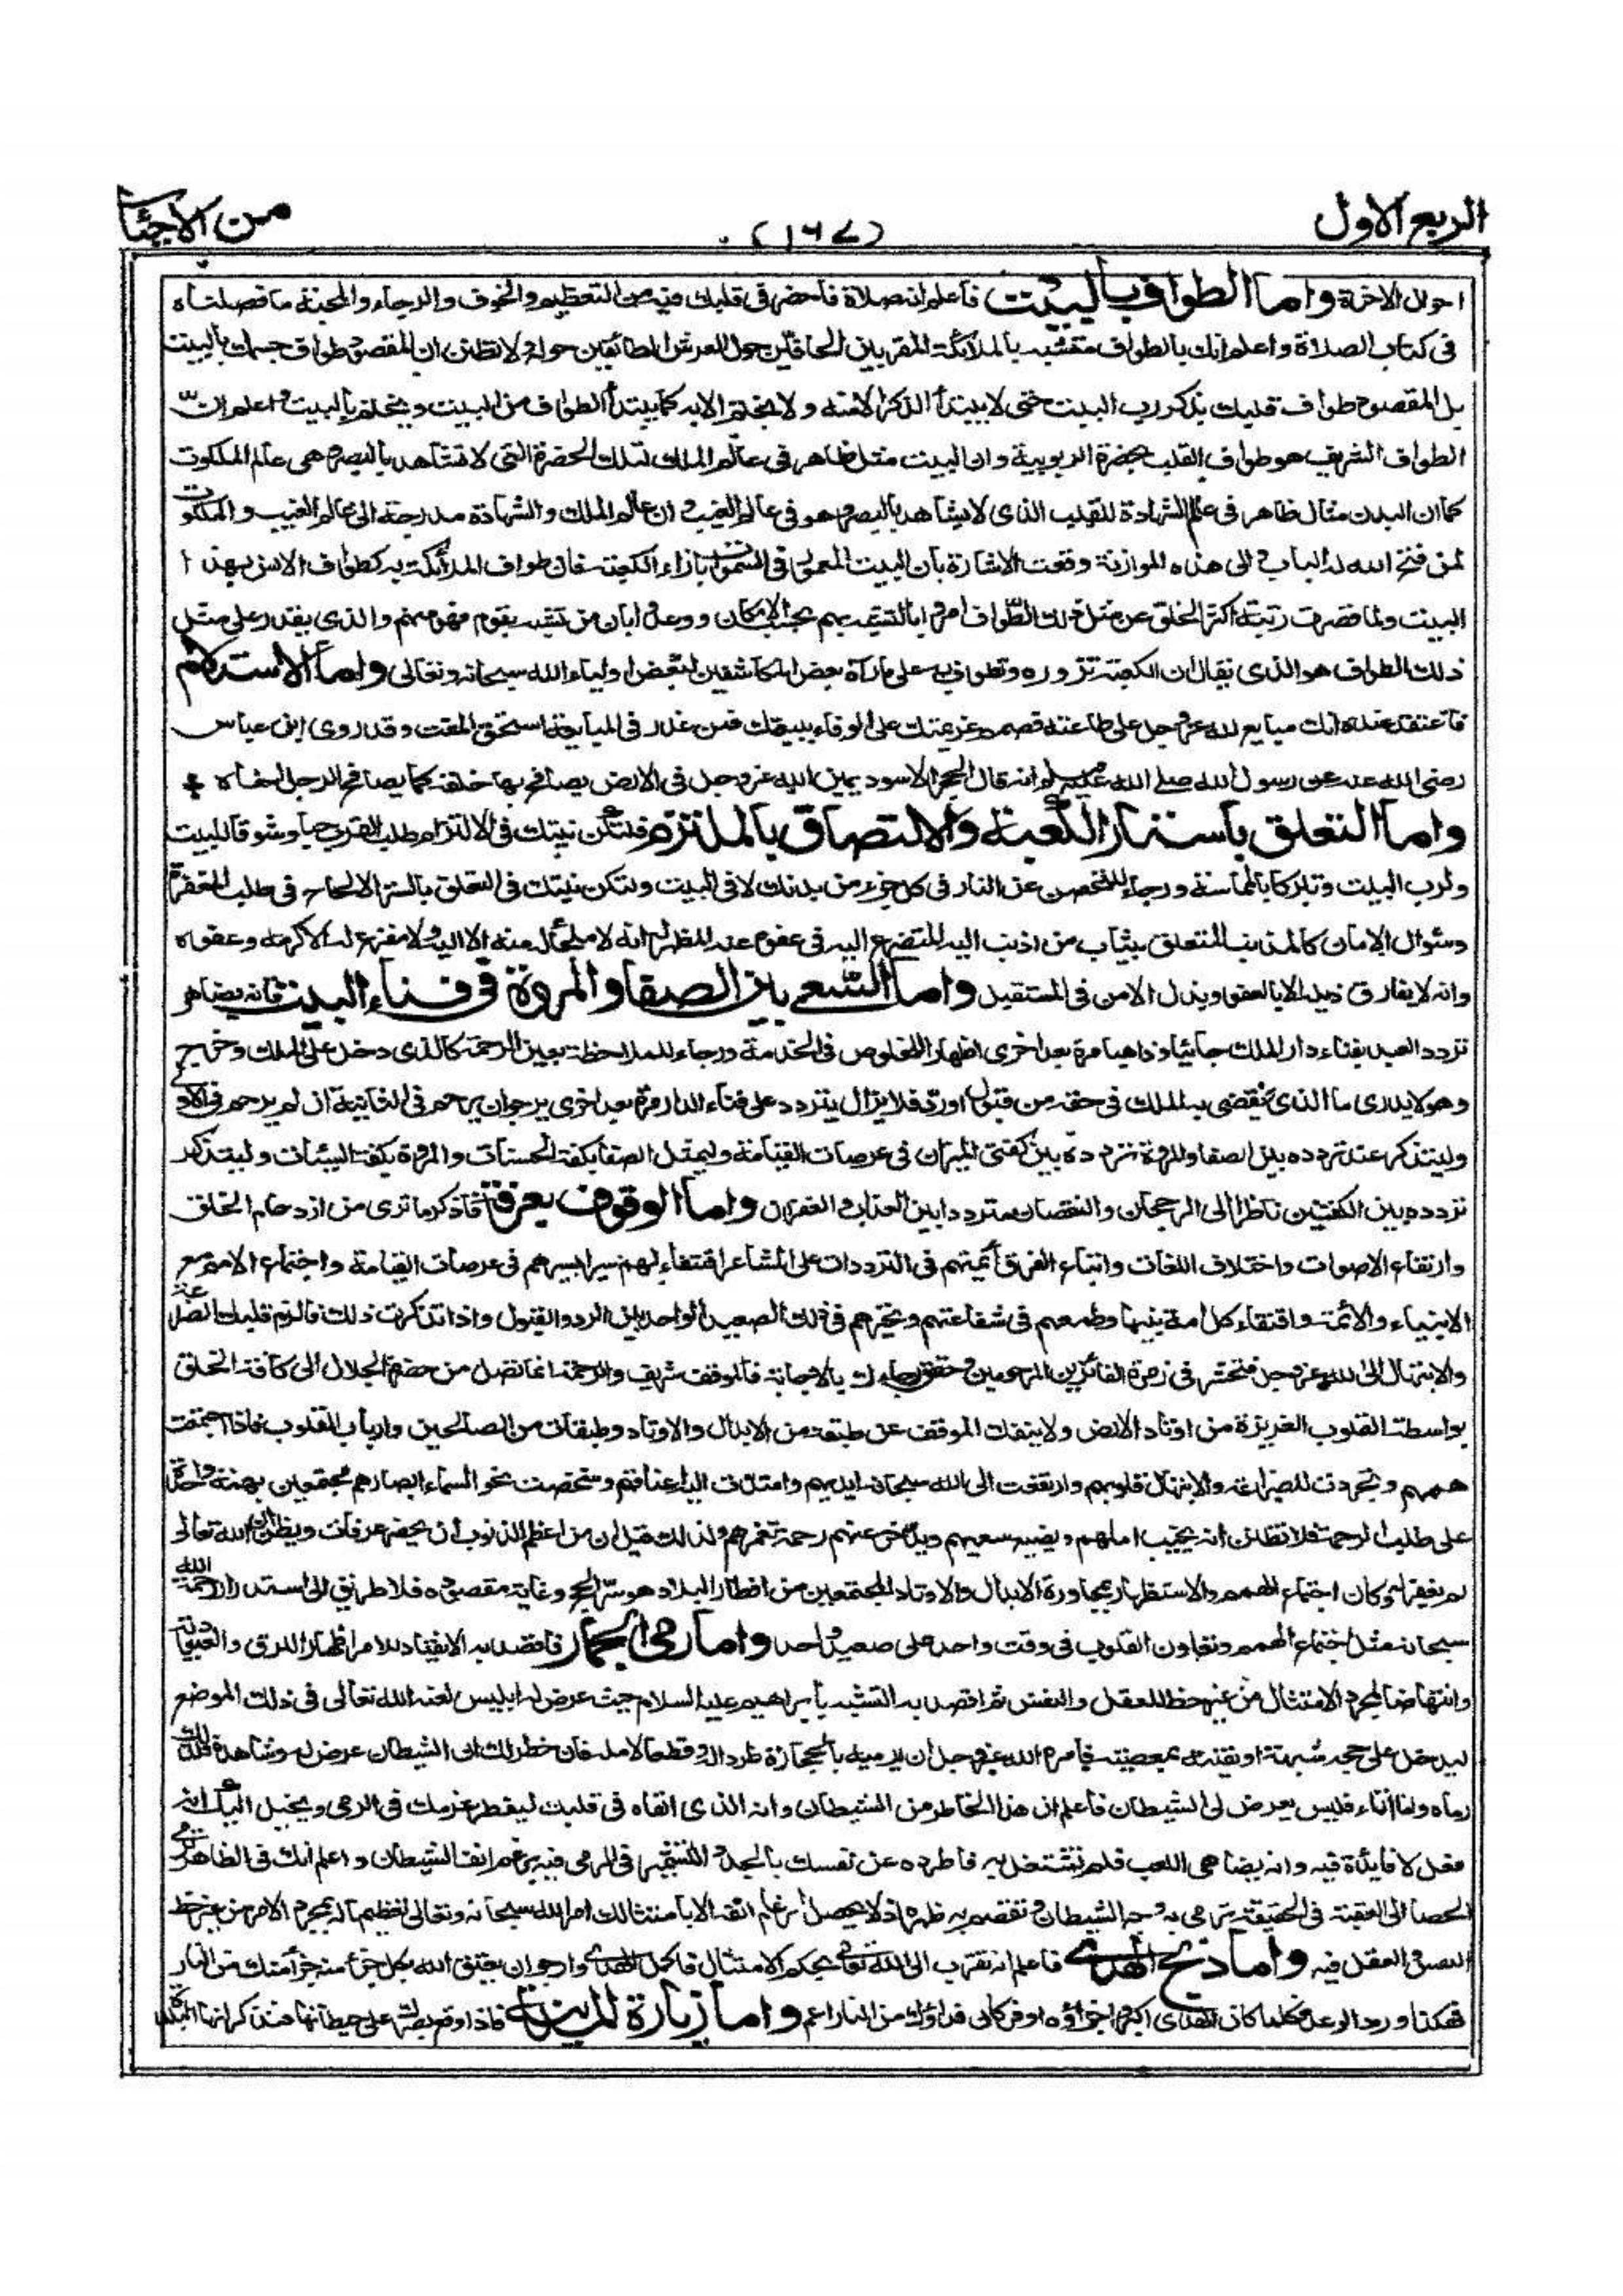 الربع الاول
(١٦٧)
من الاحياء
احوال الاخرة واما الطواف بالبيت فاعلم انه صلاة فاحضر فى قلبك فيه من التعظيم والخوف والرجاء والمحبة ما فصلناه
فى كتاب الصلاة واعلم انك بالطواف متشبه بالملائكة المقربين الحافين حول العرش الطائفين حوله ولا تظنن ان المقصود طواف جسمك بالبيت
بل المقصود طواف قلبك بذكر رب البيت حتى لا يبتدأ الذكر الا منه ولا يختم الا به كما يبتدأ الطواف من البيت ويختم بالبيت واعلم ان
الطواف الشريف هو طواف القلب بحضرة الربوبية وان البيت مثل ظاهر فى عالم الملك لتلك الحضرة التى لا تشاهد بالبصر وهى عالم الملكوت
كما ان البدن مثال ظاهر فى عالم الشهادة للقلب الذى لا يشاهد بالبصر وهو فى عالم الغيب وان عالم الملك والشهادة مدرجة الى عالم الغيب والملكوت
لمن فتح الله له الباب والى هذه الموازنة وقعت الاشارة بان البيت المعمور فى السموات بازاء الكعبة فان طواف الملائكة به كطواف الانس بهذا
البيت ولما قصرت رتبة اكثر الخلق عن مثل ذلك الطواف امروا بالتشبه بهم بحسب الامكان ووعدوا بان من تشبه بقوم فهو منهم والذى يقدر على مثل
ذلك الطواف هو الذى يقال ان الكعبة تزوره وتطوف به على ما رآه بعض المكاشفين لبعض اولياء الله سبحانه وتعالى واما الاستلام
فاعتقد عنده انك مبايع لله عز وجل على طاعته فصمم عزيمتك على الوفاء ببيعتك فمن غدر فى المبايعة استحق المقت وقد روى ابن عباس
رضى الله عنه عن رسول الله صلى الله عليه وسلم انه قال الحجر الاسود يمين الله عز وجل فى الارض يصافح بها خلقه كما يصافح الرجل اخاه
واما التعلق باستار الكعبة والالتصاق بالملتزم فلتكن نيتك فى الالتزام طلب القرب حبا وشوقا للبيت
ولرب البيت وتبركا بالمماسة ورجاء للتحصن عن النار فى كل جزء من بدنك لا فى البيت ولتكن نيتك فى التعلق بالستر الالحاح فى طلب المغفرة
وسؤال الامان كالمذنب المتعلق بثياب من اذنب اليه المتضرع اليه فى عفوه عنه المظهر له انه لا ملجأ له منه الا اليه ولا مفزع له الا كرمه وعفوه
وانه لا يفارق ذيله الا بالعفو وبذل الامن فى المستقبل واما السعى بين الصفا والمروة فى فناء البيت فانه يضاهى
تردد العبد بفناء دار الملك جائيا وذاهبا مرة بعد اخرى اظهار الخلوص فى الخدمة ورجاء للملاحظة بعين الرحمة كالذى دخل على الملك وخرج
وهو لا يدرى ما الذى يقضى به الملك فى حقه من قبول او رد فلا يزال يتردد على فناء الدار مرة بعد اخرى يرجو ان يرحم فى الثانية ان لم يرحم فى الاولى
وليتذكر عند تردده بين الصفا والمروة تردده بين كفتى الميزان فى عرصات القيامة وليمثل الصفا بكفة الحسنات والمروة بكفة السيئات وليتذكر
تردده بين الكفتين ناظرا الى الرجحان والنقصان مترددا بين العذاب والغفران واما الوقوف بعرفة فاذكر ما ترى من ازدحام الخلق
وارتفاع الاصوات واختلاف اللغات واتباع الفرق ائمتهم فى الترددات على المشاعر اقتفاء لهم وسيرا بسيرهم فى عرصات القيامة واجتماع الامم مع
الانبياء والائمة واقتفاء كل امة نبيها وطمعهم فى شفاعتهم وتحيرهم فى ذلك الصعيد الواحد بين الرد والقبول واذا تذكرت ذلك فالزم قلبك الضراعة
والابتهال الى الله عز وجل فتحشر فى زمرة الفائزين المرحومين وحقق رجاءك بالاجابة فالموقف شريف والرحمة انما تصل من حضرة الجلال الى كافة الخلق
بواسطة القلوب العزيزة من اوتاد الارض ولا ينفك الموقف عن طبقة من الابدال والاوتاد وطبقات من الصالحين وارباب القلوب فاذا اجتمعت
هممهم وتجردت للضراعة والابتهال قلوبهم وارتفعت الى الله سبحانه ايديهم وامتدت اليه اعناقهم وشخصت نحو السماء ابصارهم مجتمعين بهمة واحدة
على طلب الرحمة فلا تظنن انه يخيب املهم ويضيع سعيهم ويدخر عنهم رحمة تغمرهم ولذلك قيل ان من اعظم الذنوب ان يحضر عرفات ويظن ان الله تعالى
لم يغفر له وكان اجتماع الهمم والاستظهار بمجاورة الابدال والاوتاد المجتمعين من اقطار البلاد هو سر الحج وغاية مقصوده فلا طريق الى استدرار رحمة الله
سبحانه مثل اجتماع الهمم وتعاون القلوب فى وقت واحد على صعيد واحد واما رمى الجمار فاقصد به الانقياد للامر اظهارا للرق والعبودية
وانتهاضا لمجرد الامتثال من غير حظ للعقل والنفس ثم اقصد به التشبه بابراهيم عليه السلام حيث عرض له ابليس لعنه الله تعالى فى ذلك الموضع
ليدخل على حجه شبهة او يفتنه بمعصية فامره الله عز وجل ان يرميه بالحجارة طردا له وقطعا لامله فان خطر لك ان الشيطان عرض له وشاهده فلذلك
رماه واما انا فليس يعرض لى الشيطان فاعلم ان هذا الخاطر من الشيطان وانه الذى القاه فى قلبك ليفتر عزمك فى الرمى ويخيل اليك انه
فعل لا فايدة فيه وانه يضاهى اللعب فلم تشتغل به فاطرده عن نفسك بالجد والتشمير فى الرمى فيه برغم انف الشيطان واعلم انك فى الظاهر ترمى
الحصا الى العقبة فى الحقيقة ترمى به وجه الشيطان وتقصم به ظهره اذ لا يحصل ارغام انفه الا بامتثالك امر الله سبحانه وتعالى تعظيما له بمجرد الامر من غير حظ
النفس والعقل فيه واما ذبح الهدى فاعلم انه تقرب الى الله تعالى بحكم الامتثال فاكمل الهدى وارجو ان يعتق الله بكل جزء منه جزأ منك من النار
فهكذا ورد الوعد فكلما كان الهدى اكبر واجزاؤه اوفر كان فداؤك من النار اعم واما زيارة المدينة فاذا وقع بصرك على حيطانها فتذكر انها البلدة